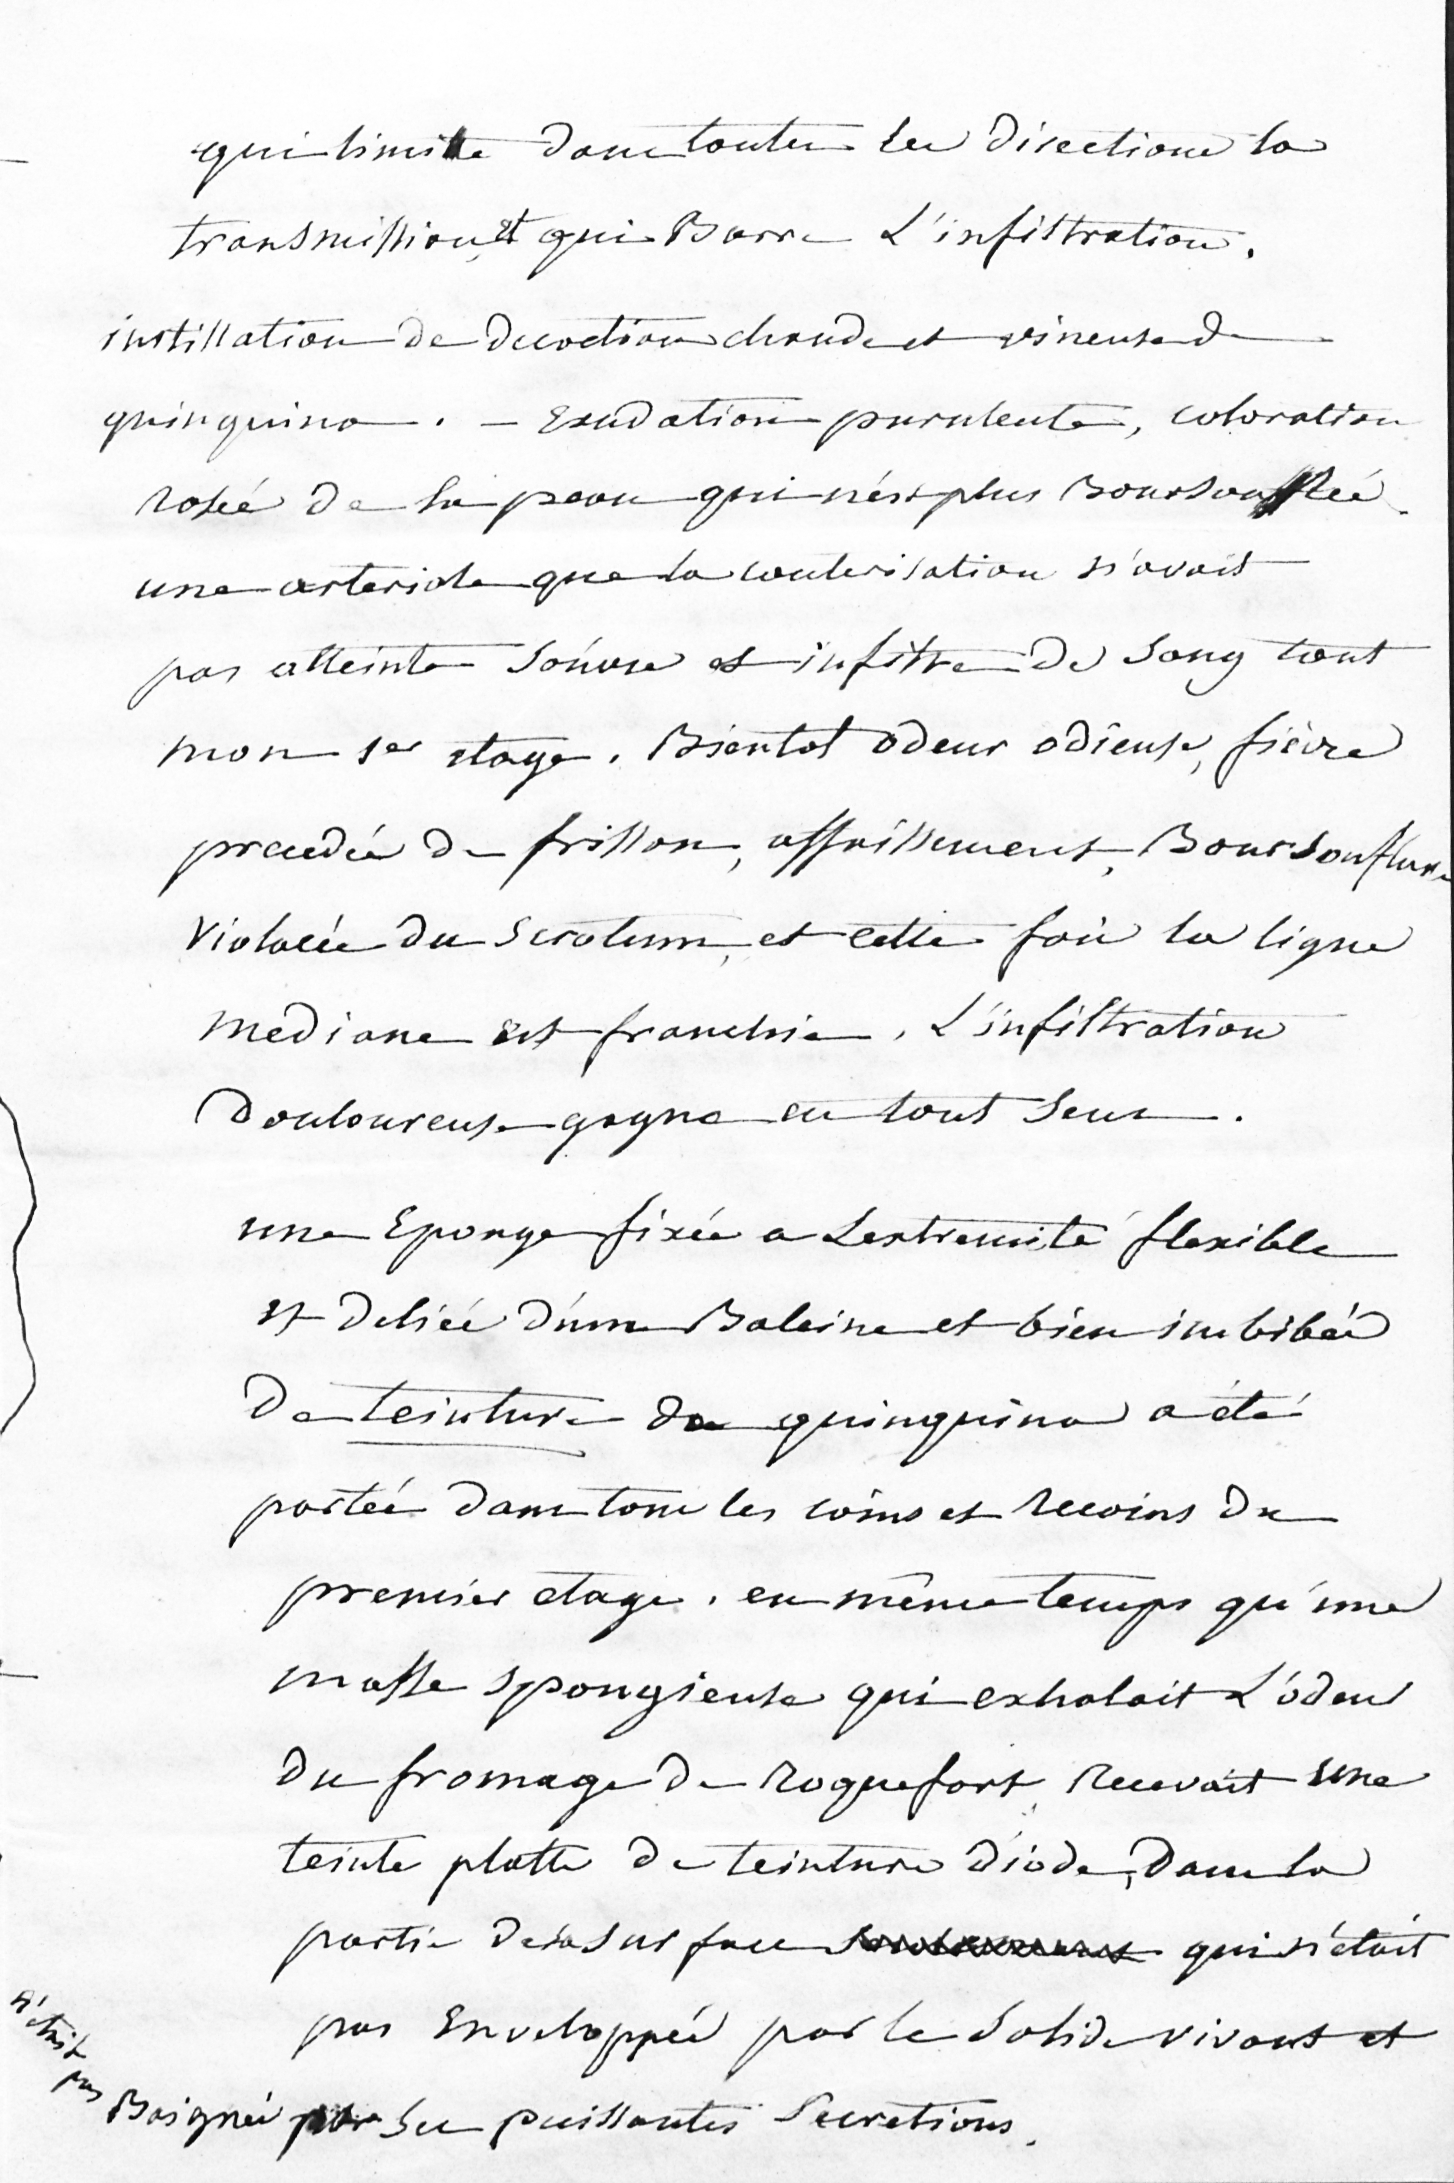 qui limitte dans toutes les directions la
transmission, et qui Barre L'infiltration.
instillation de decoction chaude et vineuse de
quinquina. — Exudation purulente, coloration
rosée de la peau qui n'est plus Boursoufflée.
une arteriole que la cauterisation n'avait
pas atteinte s'ouvre et infiltre de sang tout
mon 1er etage. Bientot odeur odieuse, fièvre
precedée de frisson, affaissement, Boursouflure
violacée du scrotum, et cette fois la ligne
mediane est franchie. L'infiltration
Douloureuse gagne en tout sens.
une Eponge fixée a Lextremité flexible
et deliée d'une Baleine et bien imbibée
De teinture de quinquina a été
portée dans tous les coins et recoins du
premier etage. en même temps qu'une
masse spongieuse qui exhalait L'odeur
du fromage de Roquefort, recevait une
teinte platte de teinture d'iode, Dans la
partie de sa surface qui n'était
pas Enveloppée par le solide vivant et
n'était pas Baignée par ses puissantes Secretions.